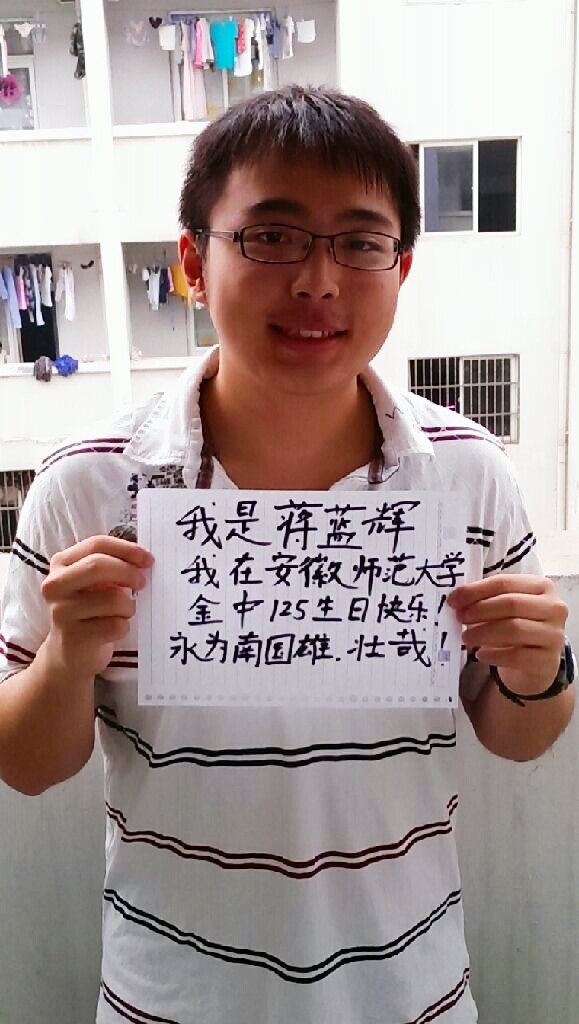 我是蒋蓝辉
我在安徽师范大学
金中125生日快乐!
永为南国雄.壮哉!